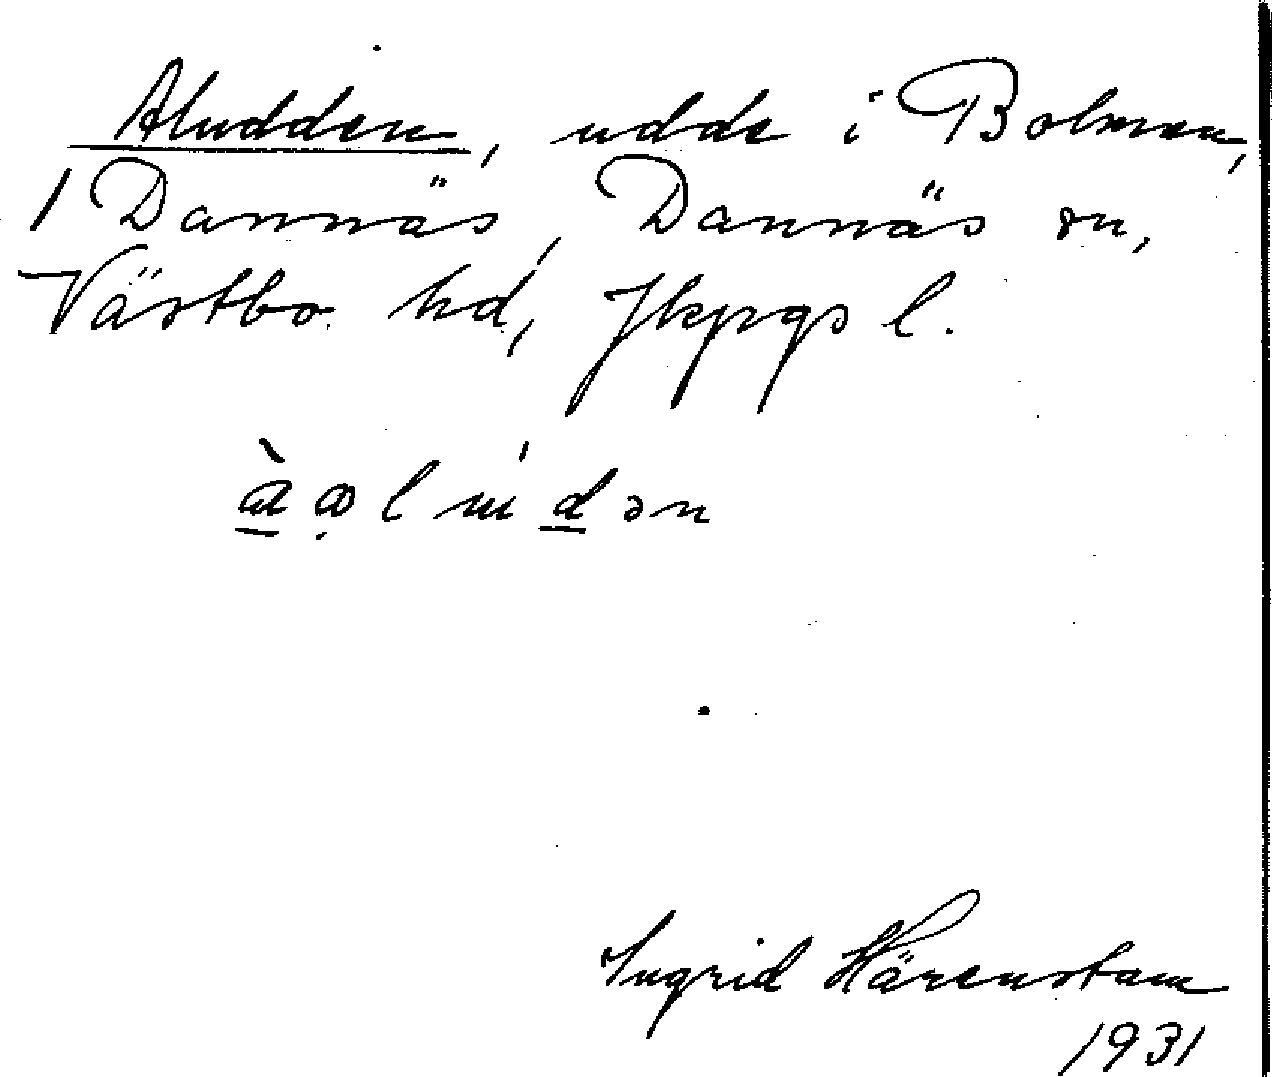 Aludden, udde i Bolmen,
1 Dannäs, Dannäs sn,
Västbo hd, Jkpgs l.
Ingrid Härenstam
1931